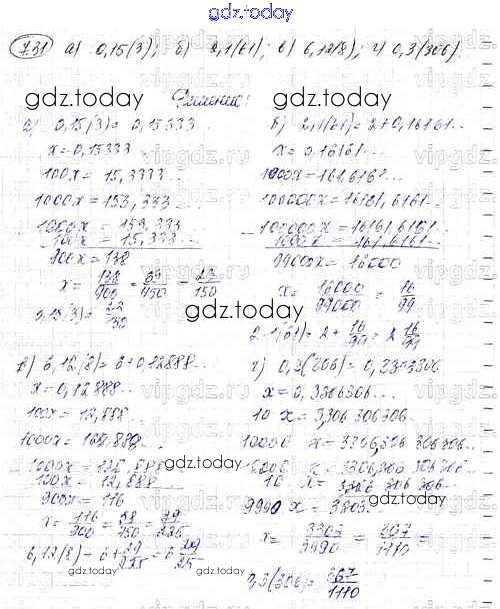 7.31 а) 0,15(3); б) 2,1(61); в) 6,12(8); г) 0,3(306).
Решение:
а) 0,15(3) = 0,15333...
x = 0,15333...
100x = 15,3333...
1000x = 153,333...
1000x = 153,333
100x = 15,333...
900x = 138
x = 138/900 = 69/450 = 23/150
б) 2,1(61) = 2 + 0,16161...
x = 0,16161...
1000x = 161,6161...
100000x = 16161,6161...
100000x = 16161,6161...
1000x = 161,6161...
99000x = 16000
x = 16000/99000 = 16/99
2,1(61) = 2 + 16/99 = 2 16/99
в) 6,12(8) = 6 + 0,12888...
x = 0,12888...
100x = 12,888
1000x = 128,888
1000x = 128,888
100x = 12,888
900x = 116
x = 116/900 = 58/450 = 29/225
6,12(8) = 6 + 29/225 = 6
г) 0,3(306) =
x = 0,3306306...
10 x = 3,306 306 306...
10000 x = 3306,306 306 306...
10000 x = 3306,306 306 306...
10 x = 306 306
9990 x = 3303
x = 3303/9990 = 367/1110
0,3(306) = 367/1110
gdz.today
gdz.today
gdz.today
gdz.today
gdz.today
gdz.today
gdz.today
gdz.today
vipgdz.ru